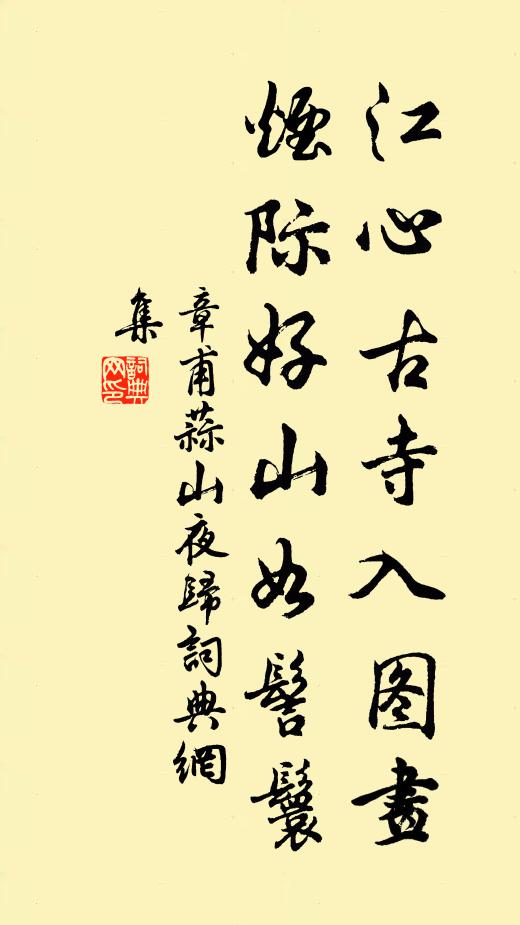 江心古寺入图畫
煙际好山如髻鬟
章甫蒜山夜歸詞典網
集
詞典
网印